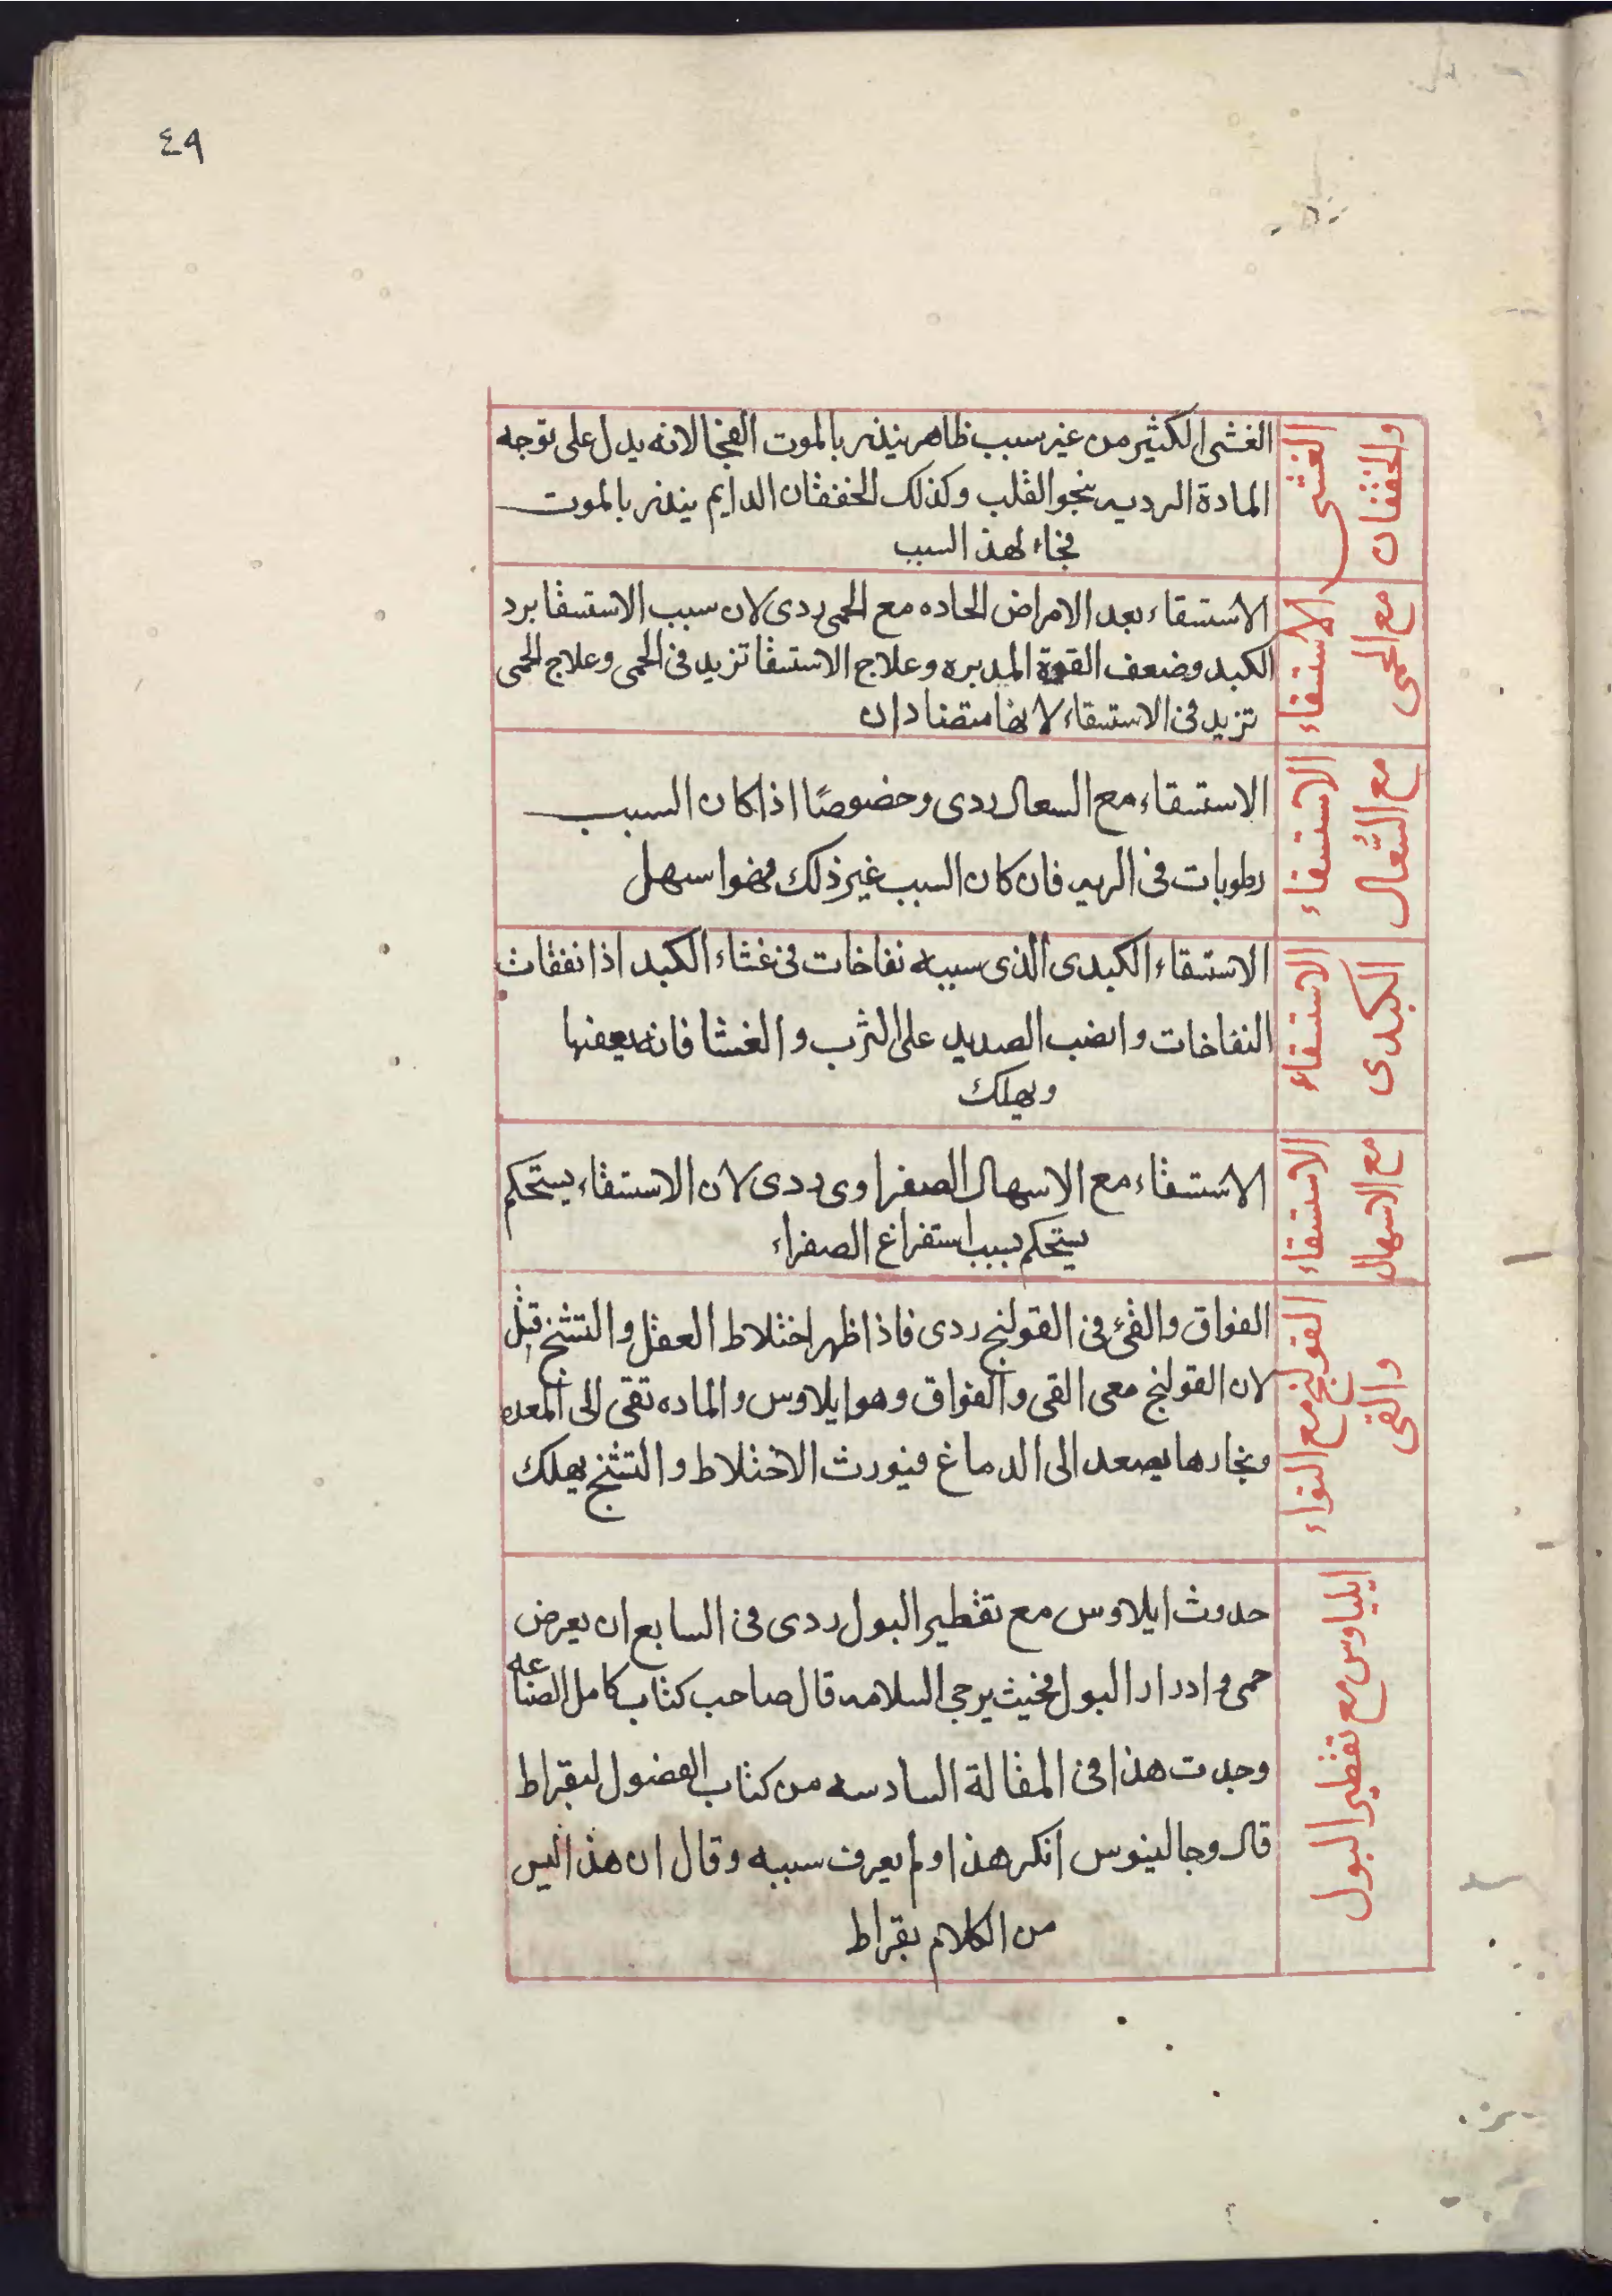 ٤٩
الغشى
والخفقان
الغشى الكثير من غير سبب ظاهر ينذر بالموت الفجا لانه يدل على توجه
المادة الرديه نحو القلب وكذلك الخفقان الدايم ينذر بالموت
فجاء لهذ السبب
الاستسقاء
مع الحمى
الاستسقاء بعد الامراض الحاده مع الحمى ردى لان سبب الاستسقا برد
الكبد وضعف القوة المدبره وعلاج الاستسقا تزيد فى الحمى وعلاج الحمى
تزيد فى الاستسقاء لانهما متضادان
الاستسقاء
مع السُّعال
الاستسقاء مع السعال ردى وخصوصًا اذا كان السبب
رطوبات فى الريه فان كان السبب غير ذلك فهوا سهل
الاستسقاء
الكبدى
الاستسقاء الكبدى الذى سببه نفاخات فى غشاء الكبد اذا نفقات
النفاخات وانضب الصديد على الثرب والغشا فانه يعفنها
ويهلك
الاستسقاء
مع الاسهال
الاستسقاء مع الاسهال الصفراوى ردى لان الاستسقاء يستحكم
يستحكم بسبب استفراغ الصفراء
القولنج مع الفواء
والقى
الفواق والقئ فى القولنج ردى فاذا ظهر اختلاط العقل والتشنج قتل
لان القولنج معى القى والفواق وهو ايلاوس والماده تقى الى المعده
وبخارها يصعد الى الدماغ فيورث الاختلاط والتشنج يهلك
ايلياوس مع تقطير البول
حدوث ايلاوس مع تقطير البول ردى فى السابع ان يعرض
حمى وادرار البول فحنيث يرجى السلامه قال صاحب كتاب كامل الصناعه
وجدت هذا فى المقالة السادسه من كتاب الفضول لبقراط
قال وجالينوس انكر هذا ولم يعرف سببه وقال ان هذا ليس
من الكلام بقراط